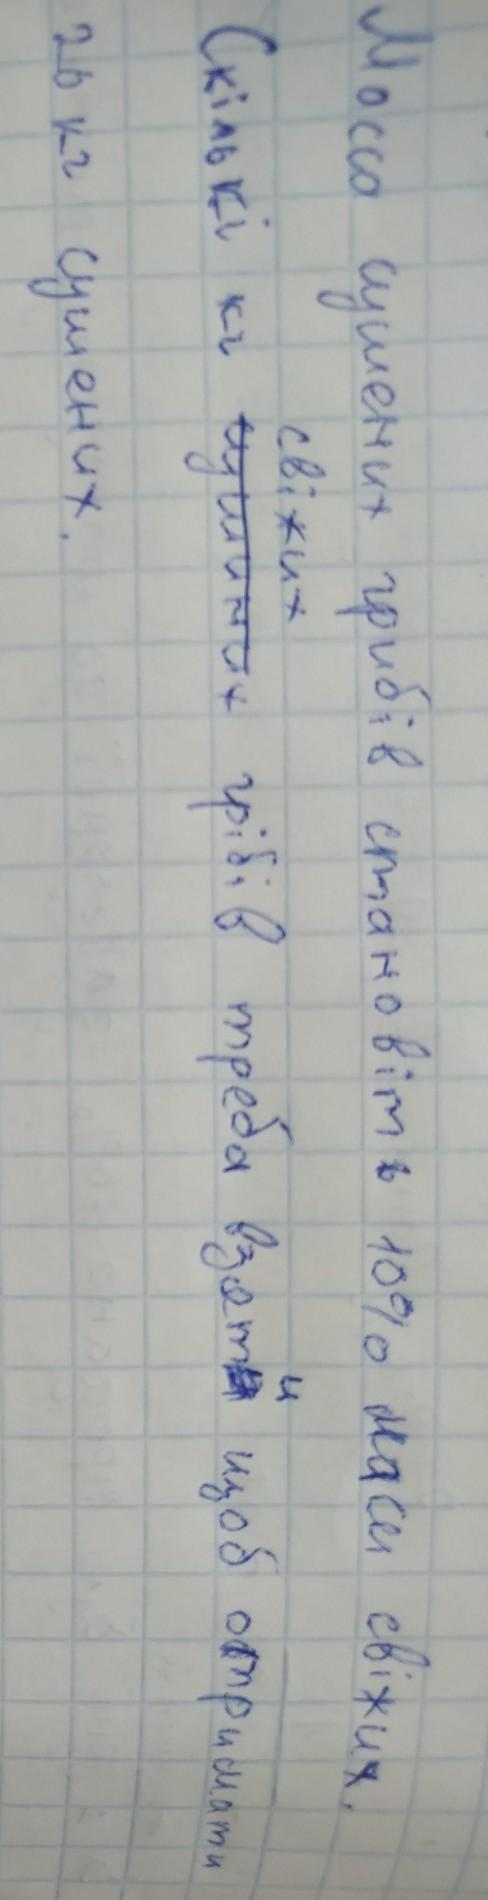 Масса сушених грибів становіть 10% маси свіжих.
свіжих
Скількі кг сушиних грібів треба взяти щоб отримати
26 кг сушених.